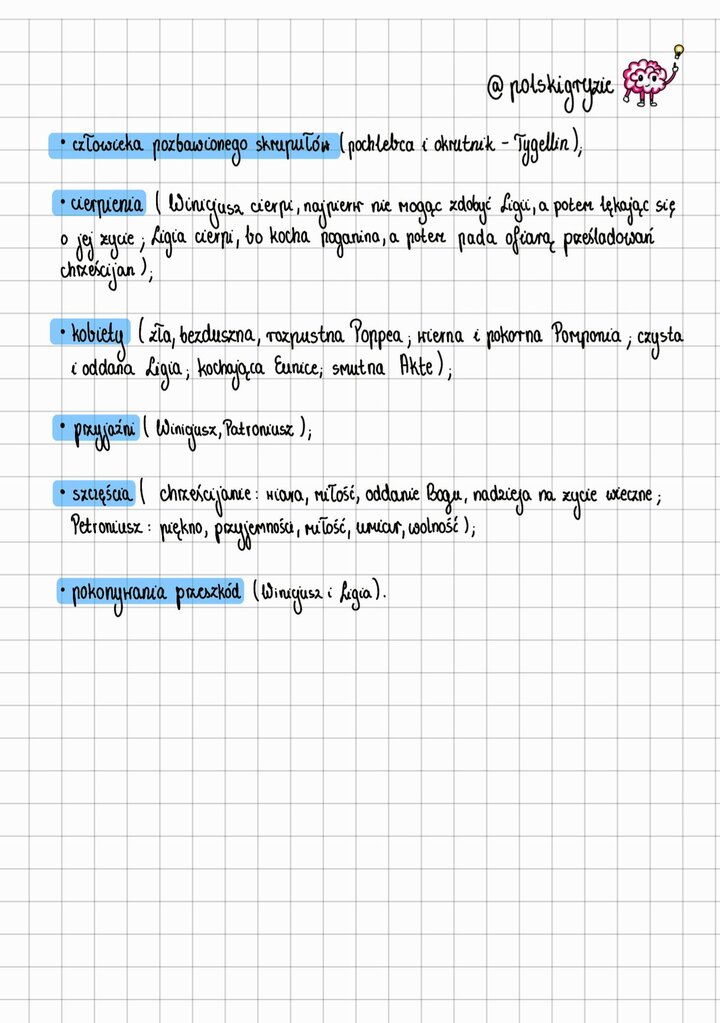 @polskigryzie
• człowieka pozbawionego skrupułów (pochlebca i okrutnik - Tygellin);
• cierpienia (Winicjusz cierpi, najpierw nie mogąc zdobyć Ligii, a potem lękając się
o jej życie; Ligia cierpi, bo kocha poganina, a potem pada ofiarą prześladowań
chrześcijan);
• kobiety (zła, bezduszna, rozpustna Poppea; wierna i pokorna Pomponia; czysta
i oddana Ligia; kochająca Eunice; smutna Akte);
• przyjaźni (Winicjusz, Patroniusz);
• szczęścia ( chrześcijanie: wiara, miłość, oddanie Bogu, nadzieja na życie wieczne;
Petroniusz: piękno, przyjemności, miłość, umiar, wolność);
• pokonywania przeszkód (Winicjusz i Ligia).